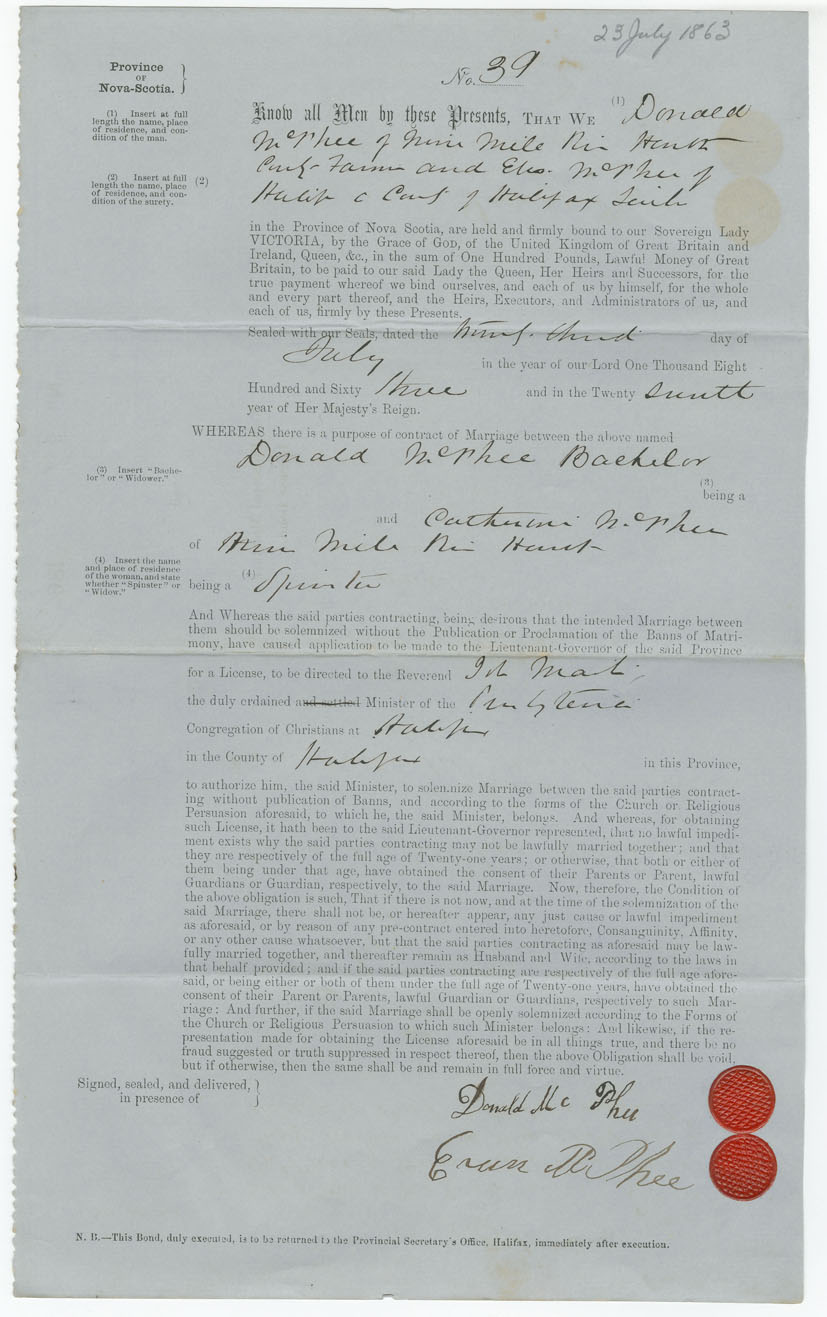 23 July 1863
Province
OF
Nova-Scotia.
No. 39
(1) Insert at full
length the name, place
of residence, and con-
dition of the man.
Know all Men by these Presents, THAT WE (1) Donald
McPhee of Nine Mile Hants
Farmer and McPhee of
(2) Insert at full
length the name, place
of residence, and con-
dition of the surety.
(2)
of Halifax
in the Province of Nova Scotia, are held and firmly bound to our Sovereign Lady
VICTORIA, by the Grace of GOD, of the United Kingdom of Great Britain and
Ireland, Queen, &c., in the sum of One Hundred Pounds, Lawful Money of Great
Britain, to be paid to our said Lady the Queen, Her Heirs and Successors, for the
true payment whereof we bind ourselves, and each of us by himself, for the whole
and every part thereof, and the Heirs, Executors, and Administrators of us, and
each of us, firmly by these Presents.
Sealed with our Seals, dated the Twenty Third day of
July in the year of our Lord One Thousand Eight
Hundred and Sixty three and in the Twenty Seventh
year of Her Majesty's Reign.
WHEREAS there is a purpose of contract of Marriage between the above named
Donald McPhee Bachelor
(3) Insert "Bache-
lor" or "Widower."
(3)
being a
and Catherine McPhee
of Nine Mile Hants
(4) Insert the name
and place of residence
of the woman, and state
whether "Spinster" or
"Widow."
being a (4) Spinster
And Whereas the said parties contracting, being desirous that the intended Marriage between
them should be solemnized without the Publication or Proclamation of the Banns of Matri-
mony, have caused application to be made to the Lieutenant-Governor of the said Province
for a License, to be directed to the Reverend
the duly ordained and settled Minister of the Presbyterian
Congregation of Christians at Halifax
in the County of Halifax in this Province,
to authorize him, the said Minister, to solemnize Marriage between the said parties contract-
ing without publication of Banns, and according to the forms of the Church or Religious
Persuasion aforesaid, to which he, the said Minister, belongs. And whereas, for obtaining
such License, it hath been to the said Lieutenant-Governor represented, that no lawful impedi-
ment exists why the said parties contracting may not be lawfully married together; and that
they are respectively of the full age of Twenty-one years; or otherwise, that both or either of
them being under that age, have obtained the consent of their Parents or Parent, lawful
Guardians or Guardian, respectively, to the said Marriage. Now, therefore, the Condition of
the above obligation is such, That if there is not now, and at the time of the solemnization of the
said Marriage, there shall not be, or hereafter appear, any just cause or lawful impediment
as aforesaid, or by reason of any pre-contract entered into heretofore, Consanguinity, Affinity,
or any other cause whatsoever, but that the said parties contracting as aforesaid may be law-
fully married together, and thereafter remain as Husband and Wife, according to the laws in
that behalf provided; and if the said parties contracting are respectively of the full age afore-
said, or being either or both of them under the full age of Twenty-one years, have obtained the
consent of their Parent or Parents, lawful Guardian or Guardians, respectively to such Mar-
riage: And further, if the said Marriage shall be openly solemnized according to the Forms of
the Church or Religious Persuasion to which such Minister belongs: And likewise, if the re-
presentation made for obtaining the License aforesaid be in all things true, and there be no
fraud suggested or truth suppressed in respect thereof, then the above Obligation shall be void,
but if otherwise, then the same shall be and remain in full force and virtue.
Signed, sealed, and delivered,
in presence of
Donald Mc Phee
Evan McPhee
N. B.—This Bond, duly executed, is to be returned to the Provincial Secretary's Office, Halifax, immediately after execution.